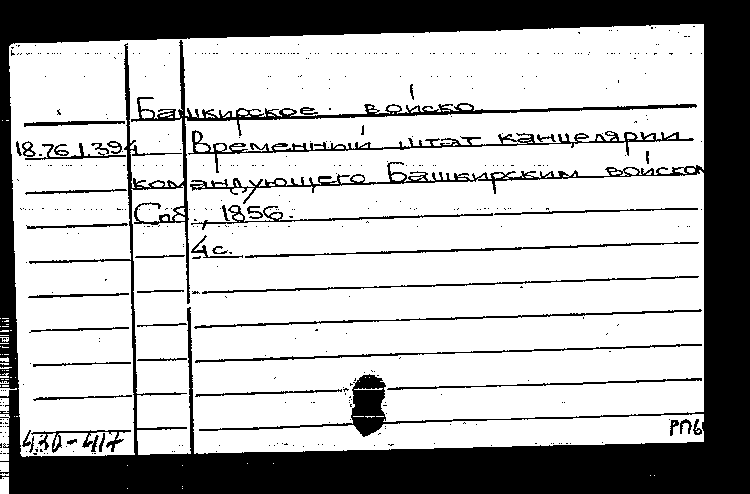 Башкирское войско
18.76.1.394 Временный штат канцелярии
командующего Башкирским войском
Спб., 1856.
4 с.
430-417
РПБ